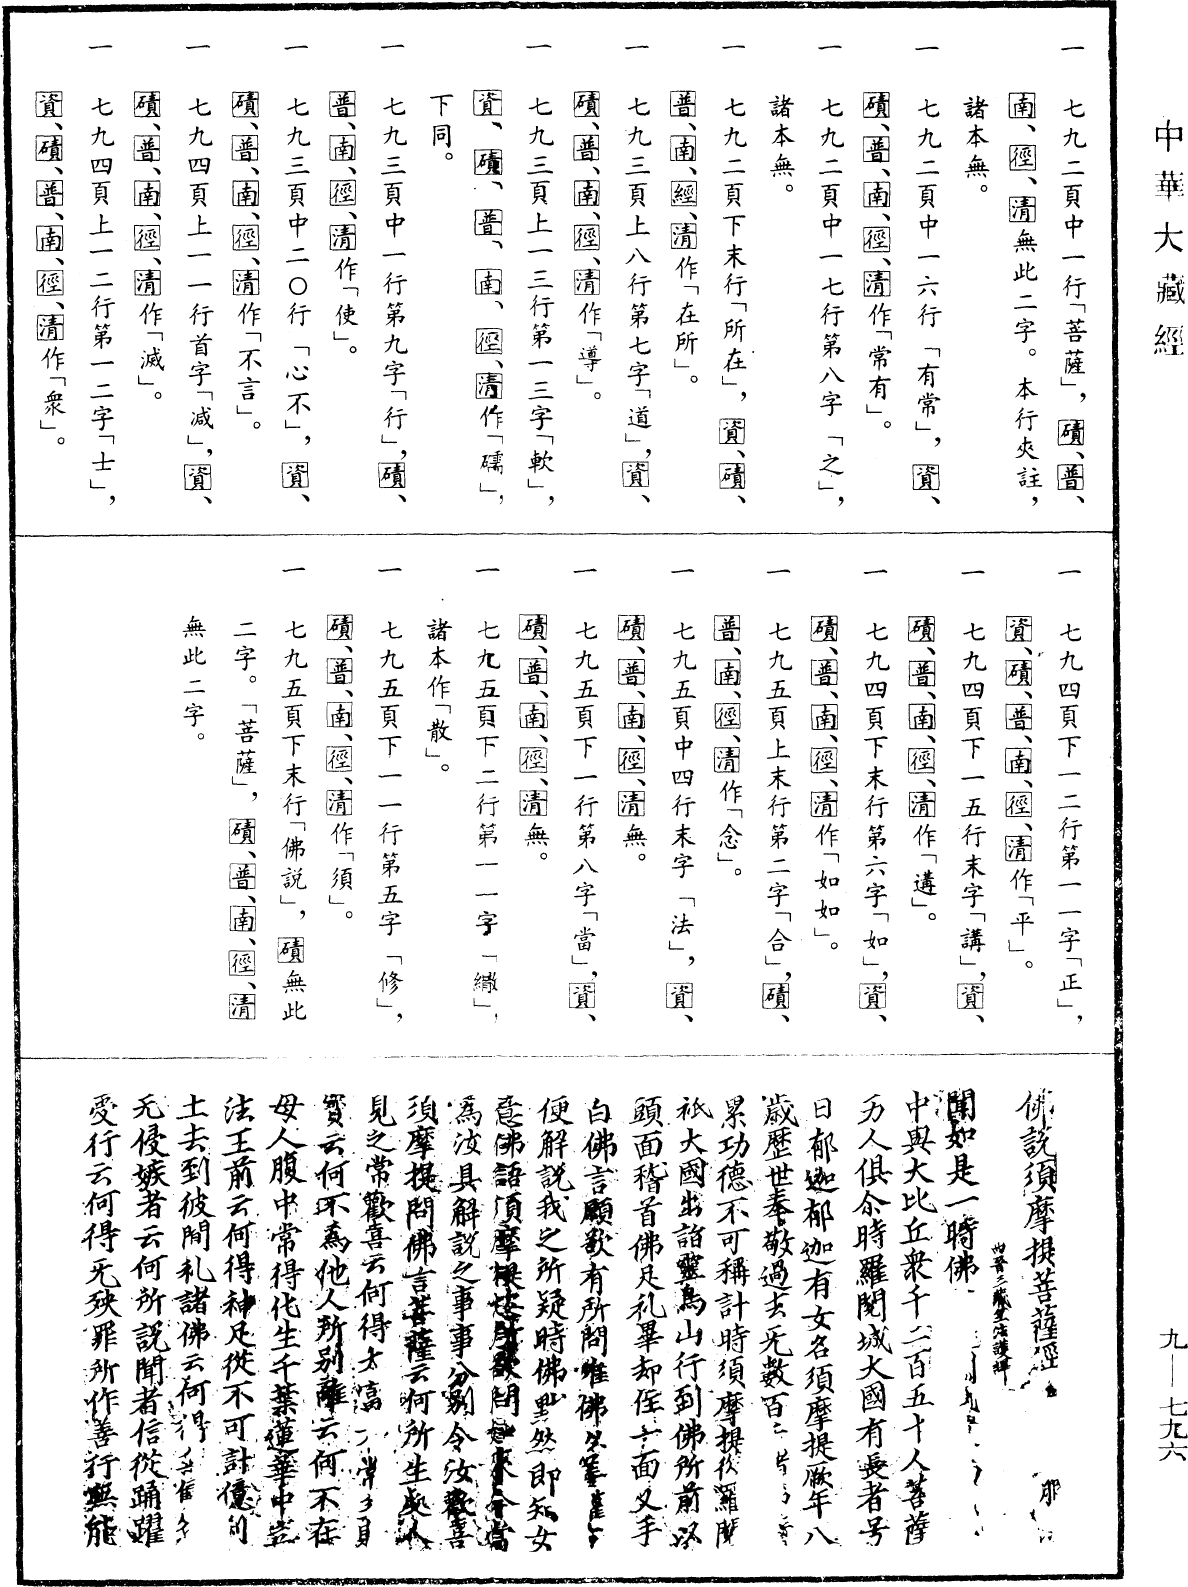 中華大藏經
一　七九二頁中一行「菩薩」，磧、普、
南、徑、清無此二字。本行夾註，
諸本無。
一　七九二頁中一六行「有常」，資、
磧、普、南、徑、清作「常有」。
一　七九二頁中一七行第八字「之」，
諸本無。
一　七九二頁下末行「所在」，資、磧、
普、南、經、清作「在所」。
一　七九三頁上八行第七字「道」，資、
磧、普、南、徑、清作「導」。
一　七九三頁上一三行第一三字「軟」，
資、磧、普、南、徑、清作「礝」，
下同。
一　七九三頁中一行第九字「行」，磧、
普、南、徑、清作「使」。
一　七九三頁中二〇行「心不」，資、
磧、普、南、徑、清作「不言」。
一　七九四頁上一一行首字「減」，資、
磧、普、南、徑、清作「滅」。
一　七九四頁上一二行第一二字「士」，
資、磧、普、南、徑、清作「衆」。
一　七九四頁下一二行第一一字「正」，
資、磧、普、南、徑、清作「平」。
一　七九四頁下一五行末字「講」，資、
磧、普、南、徑、清作「遘」。
一　七九四頁下末行第六字「如」，資、
磧、普、南、徑、清作「如如」。
一　七九五頁上末行第二字「合」，磧、
普、南、徑、清作「念」。
一　七九五頁中四行末字「法」，資、
磧、普、南、徑、清無。
一　七九五頁下一行第八字「當」，資、
磧、普、南、徑、清無。
一　七九五頁下二行第一一字「繖」，
諸本作「散」。
一　七九五頁下一一行第五字「修」，
磧、普、南、徑、清作「須」。
一　七九五頁下末行「佛説」，磧無此
二字。「菩薩」，磧、普、南、徑、清
無此二字。
佛説須摩提菩薩經
西晉三藏竺法護譯
聞如是一時佛
中與大比丘衆千二百五十人菩薩
万人俱尒時羅閱城大國有長者号
曰郁迦郁迦有女名須摩提厥年八
歲歷世奉敬過去无數百
累功德不可稱計時須摩提從羅閱
祇大國出詣靈鳥山行到佛所前以
頭面稽首佛足礼畢却住一面叉手
白佛言願欲有所問唯佛
便解説我之所疑時佛默然即知女
意佛語須摩提恣所欲問如來今當
為汝具解説之事事分別令汝歡喜
須摩提問佛言菩薩云何所生處人
見之常歡喜云何得大富
寶云何不為他人所別離云何不在
母人腹中常得化生千葉蓮華中立
法王前云何得神足從不可計億
土去到彼間礼諸佛云何得
无侵嫉者云何所説聞者信從踊躍
受行云何得无殃罪所作善行無能
九—七九六